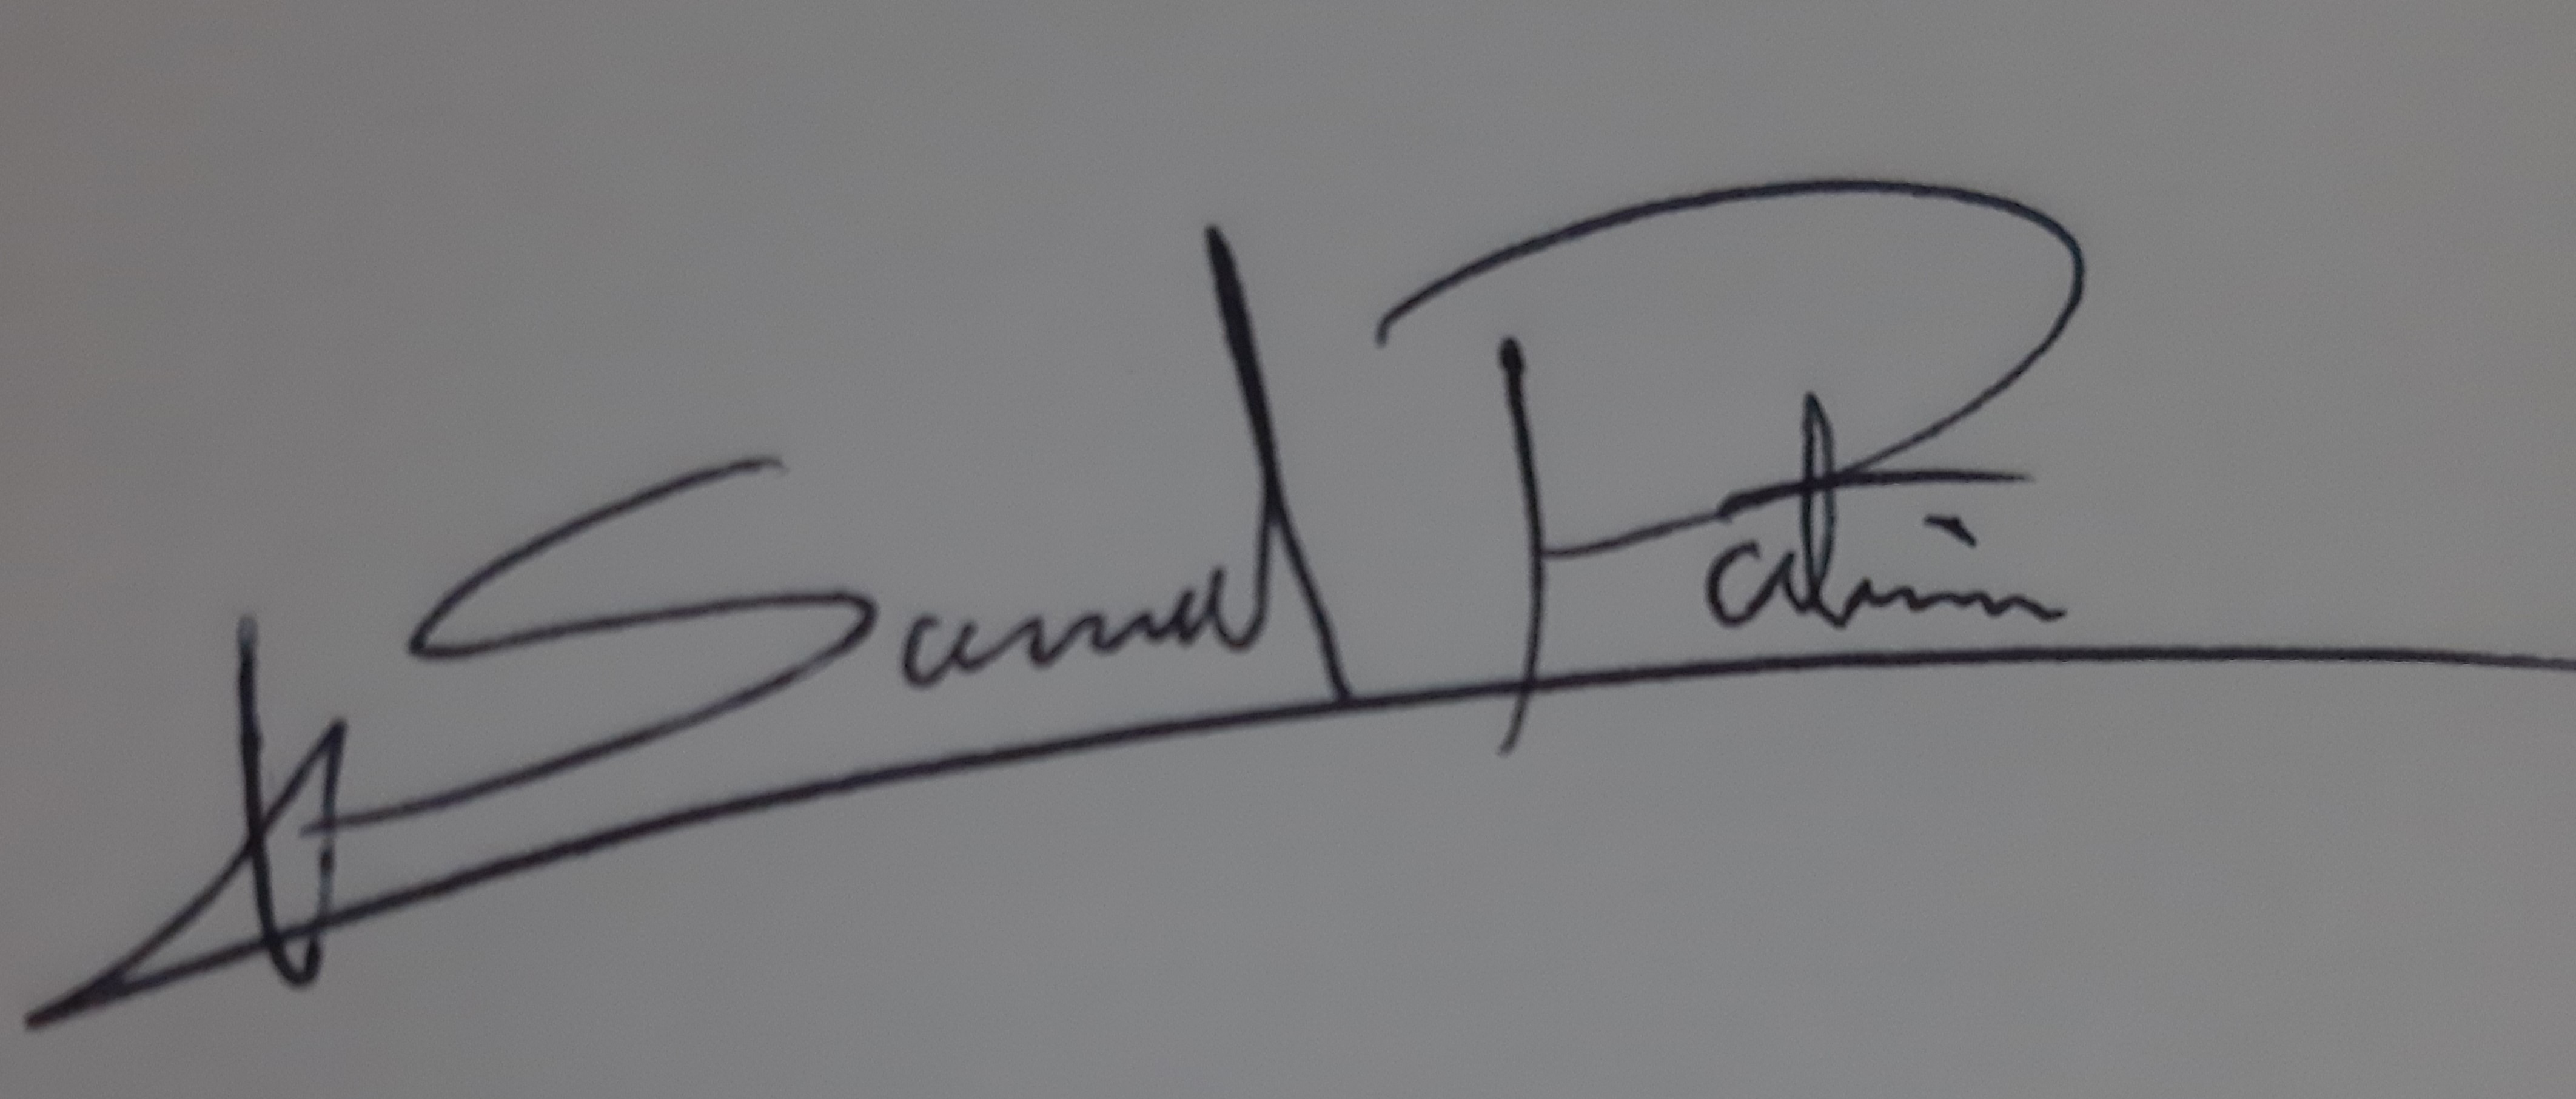 Samuel Patiin